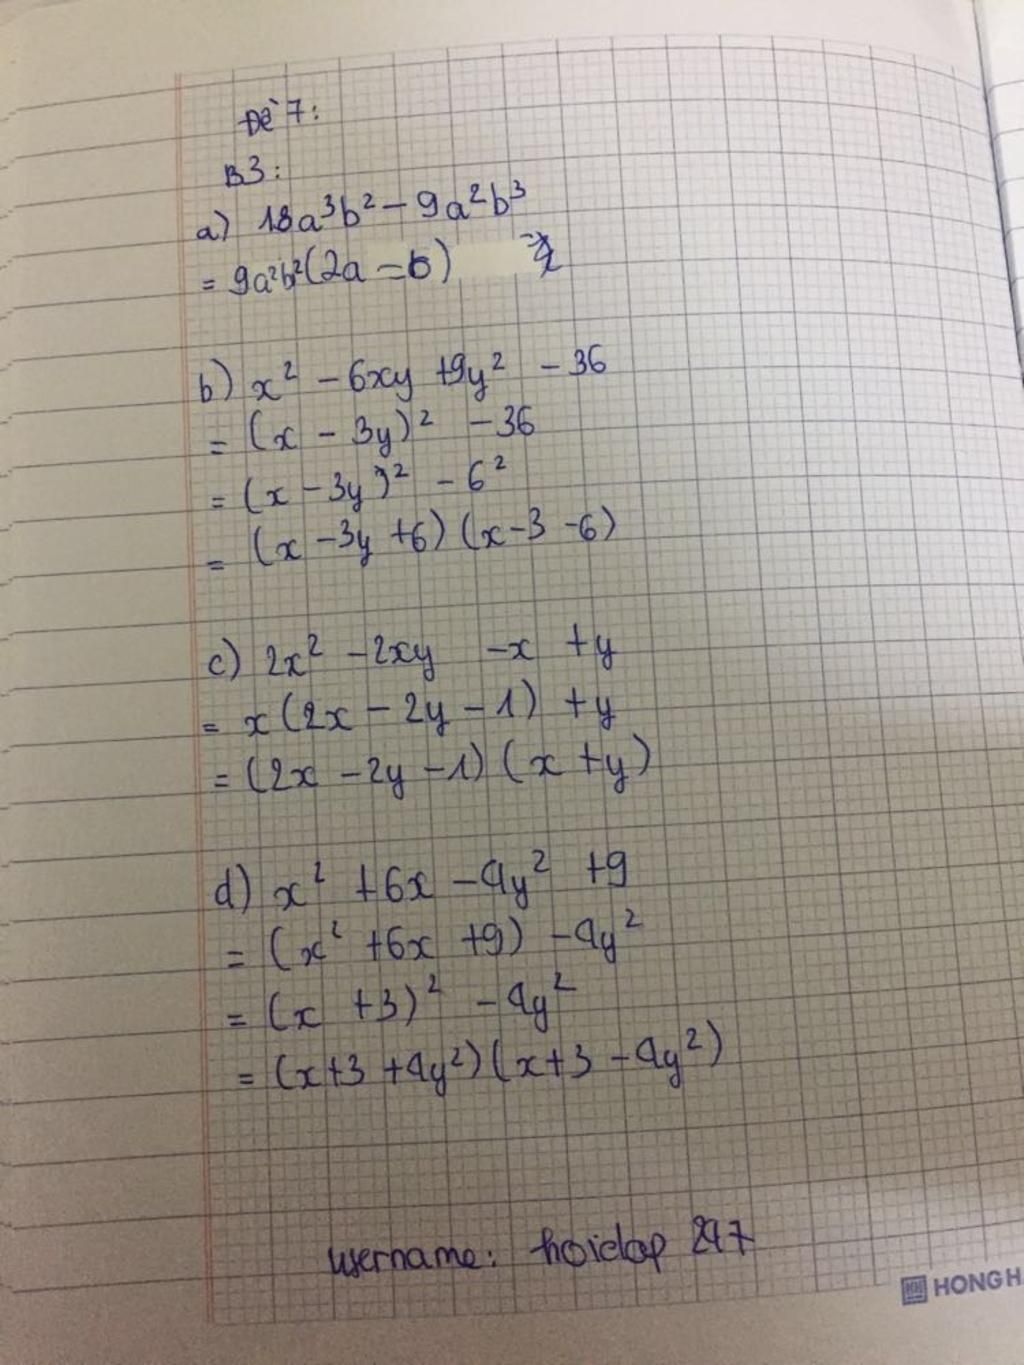 Đề 7:
B3:
a) 18a³b² - 9a²b³
= 9a²b²(2a - b)
b) x² - 6xy + 9y² - 36
= (x - 3y)² - 36
= (x - 3y)² - 6²
= (x - 3y + 6) (x - 3 - 6)
c) 2x² - 2xy - x + y
= x(2x - 2y - 1) + y
= (2x - 2y - 1) (x + y)
d) x² + 6x - 4y² + 9
= (x² + 6x + 9) - 4y²
= (x + 3)² - 4y²
= (x + 3 + 4y²) (x + 3 - 4y²)
username: hoidap 247
HONG H